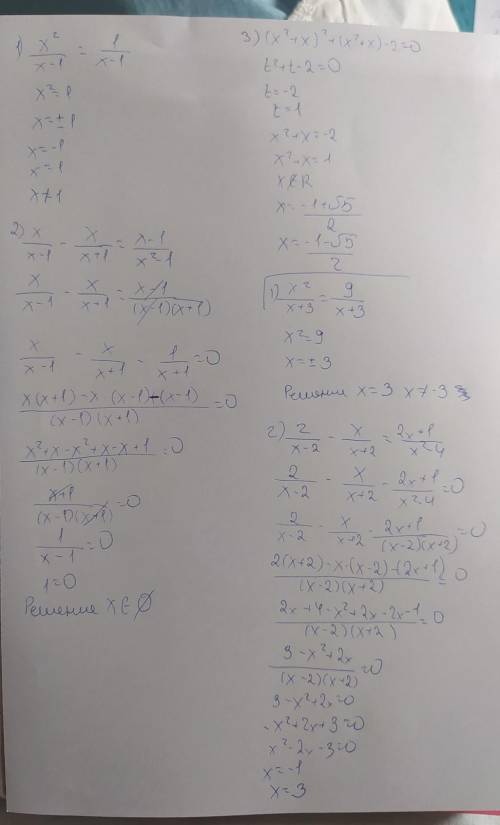 1) x²/(x-1) = 1/(x-1)
x²=1
x=±1
x=-1
x=1
x≠1
2) x/(x-1) - x/(x+1) = (x-1)/(x²-1)
x/(x-1) - x/(x+1) = (x-1)/((x-1)(x+1))
x/(x-1) - x/(x+1) - 1/(x+1) = 0
(x(x+1)-x·(x-1)-(x-1))/((x-1)(x+1)) = 0
(x²+x-x²+x-x+1)/((x-1)(x+1)) = 0
(x+1)/((x-1)(x+1)) = 0
1/(x-1) = 0
1=0
Решение x∈∅
3) (x²+x)²+(x²+x)-2=0
t²+t-2=0
t=-2
t=1
x²+x=-2
x²+x=1
x∉R
x=(-1+√5)/2
x=(-1-√5)/2
1) x²/(x+3) = 9/(x+3)
x²=9
x=±3
Решение x=3 x≠-3
2) 2/(x-2) - x/(x+2) = (2x+1)/(x²-4)
2/(x-2) - x/(x+2) - (2x+1)/(x²-4) = 0
2/(x-2) - x/(x+2) - (2x+1)/((x-2)(x+2)) = 0
(2(x+2)-x·(x-2)-(2x+1))/((x-2)(x+2)) = 0
(2x+4-x²+2x-2x-1)/((x-2)(x+2)) = 0
(3-x²+2x)/((x-2)(x+2)) = 0
3-x²+2x=0
-x²+2x+3=0
x²-2x-3=0
x=-1
x=3